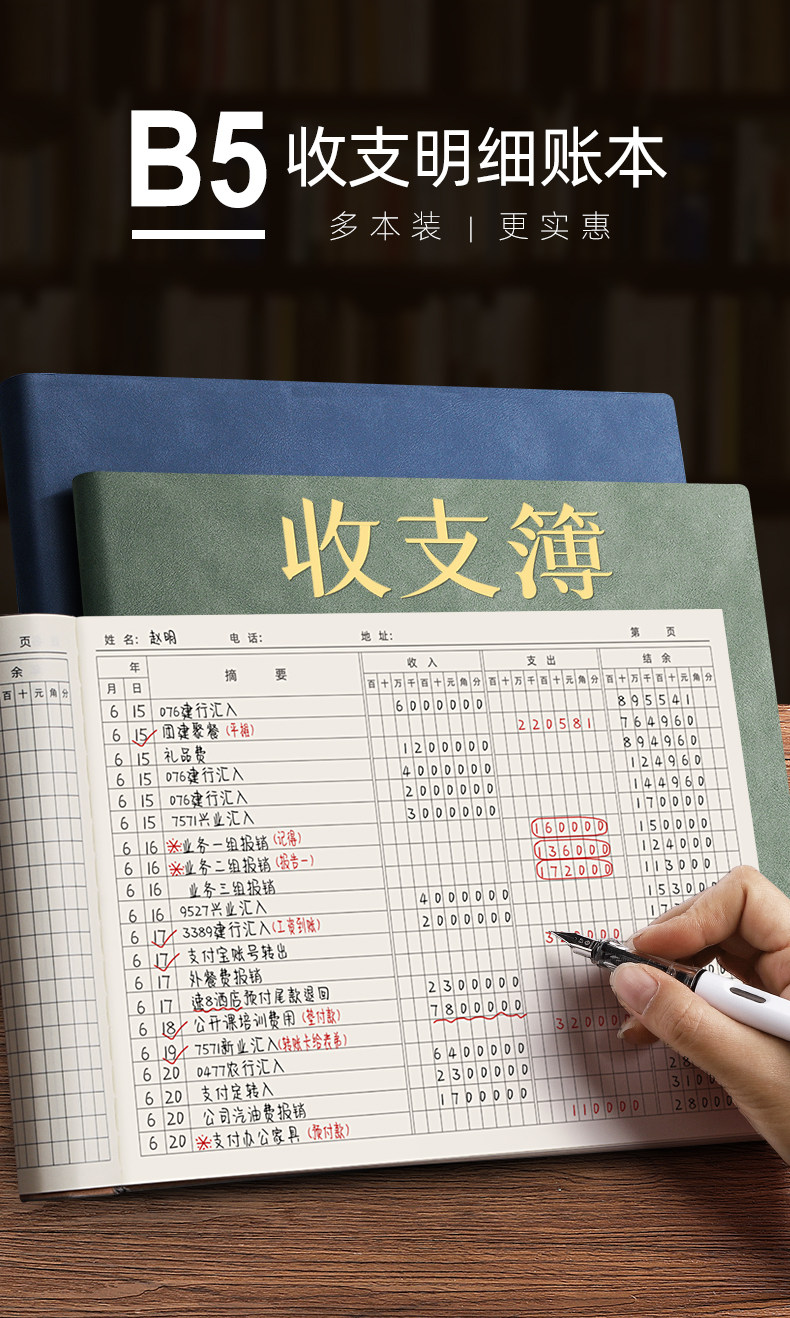 B5 收支明细账本
多本装 | 更实惠
收支簿
页
姓名: 赵明 电话: 地址: 第 页
余
年 摘要 收入 支出 结余
月 日
百十元角分 百十万千百十元角分 百十万千百十元角分 百十万千百十元角分
6 15 076建行汇入 6000000 895541
6 15 团建聚餐 220581 764960
6 15 礼品费 1200000 894960
6 15 076建行汇入 4000000 124960
6 15 076建行汇入 2000000 144960
6 15 7571兴业汇入 3000000 170000
6 16 ※业务一组报销(记得) 160000 150000
6 16 ※业务二组报销(报告一) 136000 124000
6 16 业务三组报销 172000 113000
6 16 9527兴业汇入 4000000 153000
6 17 3389建行汇入(工资到账) 2000000
6 17 支付宝账号转出
6 17 外餐费报销
6 17 速8酒店预付尾款退回 2300000
6 18 公开课培训费用(垫付款) 7800000
6 19 7571新业汇入 320000
6 20 0477农行汇入 6400000
6 20 支付定转入 2300000
6 20 公司汽油费报销 1700000
6 20 ※支付办公家具(预付款) 110000 28000